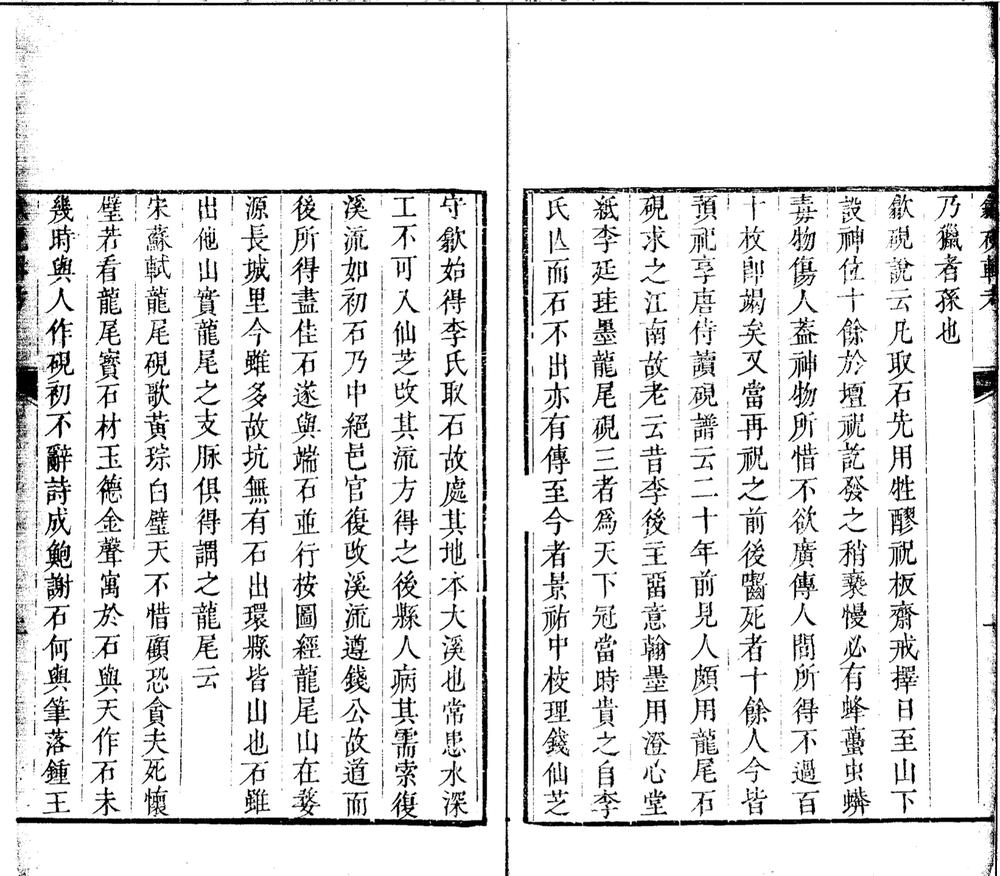 乃獵者孫也
歙硯說云凡取石先用牲醪祝板齋戒擇日至山下
設神位十餘於壇祝訖發之稍褻慢必有蜂蠆虫蠎
毒物傷人葢神物所惜不欲廣傳人間所得不過百
十枚卽竭矣又當再祝之前後齧死者十餘人今皆
預祀享唐侍讀硯譜云二十年前見人頗用龍尾石
硯求之江南故老云昔李後主畱意翰墨用澄心堂
紙李廷珪墨龍尾硯三者爲天下冠當時貴之自李
氏亾而石不出亦有傳至今者景祐中校理錢仙芝
守歙始得李氏取石故處其地本大溪也常患水深
工不可入仙芝改其流方得之後縣人病其需索復
溪流如初石乃中絕邑官復改溪流遵錢公故道而
後所得盡佳石遂與端石並行按圖經龍尾山在婺
源長城里今雖多故坑無有石出環縣皆山也石雖
出他山實龍尾之支脉俱得謂之龍尾云
宋蘇軾龍尾硯歌黃琮白璧天不惜顧恐貪夫死懷
璧若看龍尾寶石材玉德金聲寓於石與天作石未
幾時與人作硯初不辭詩成鮑謝石何與筆落鍾王